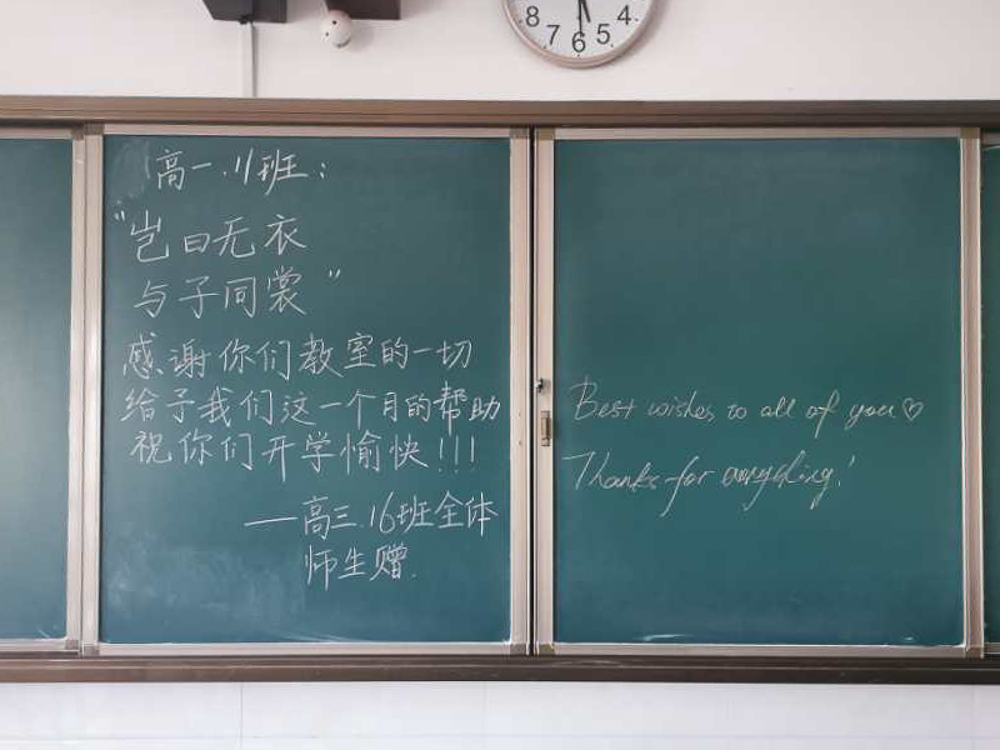 8 7 6 5 4
高一.11班：
“岂曰无衣
与子同裳”
感谢你们教室的一切
给予我们这一个月的帮助
祝你们开学愉快!!!
——高三.16班全体
师生赠.
Best wishes to all of you♡
Thanks for everything!